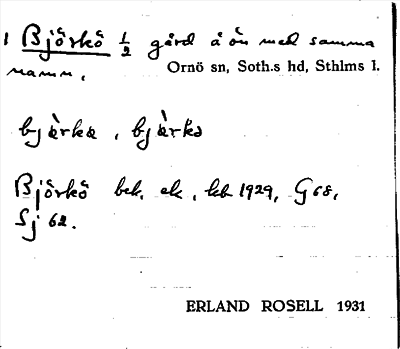 1 Björkö ½ gård å ön med samma
namn.
Ornö sn, Soth.s hd, Sthlms l.
bjàrka, bjàrkə
Björkö bek. ek, kb 1929, G 68,
Sj 62.
ERLAND ROSELL 1931